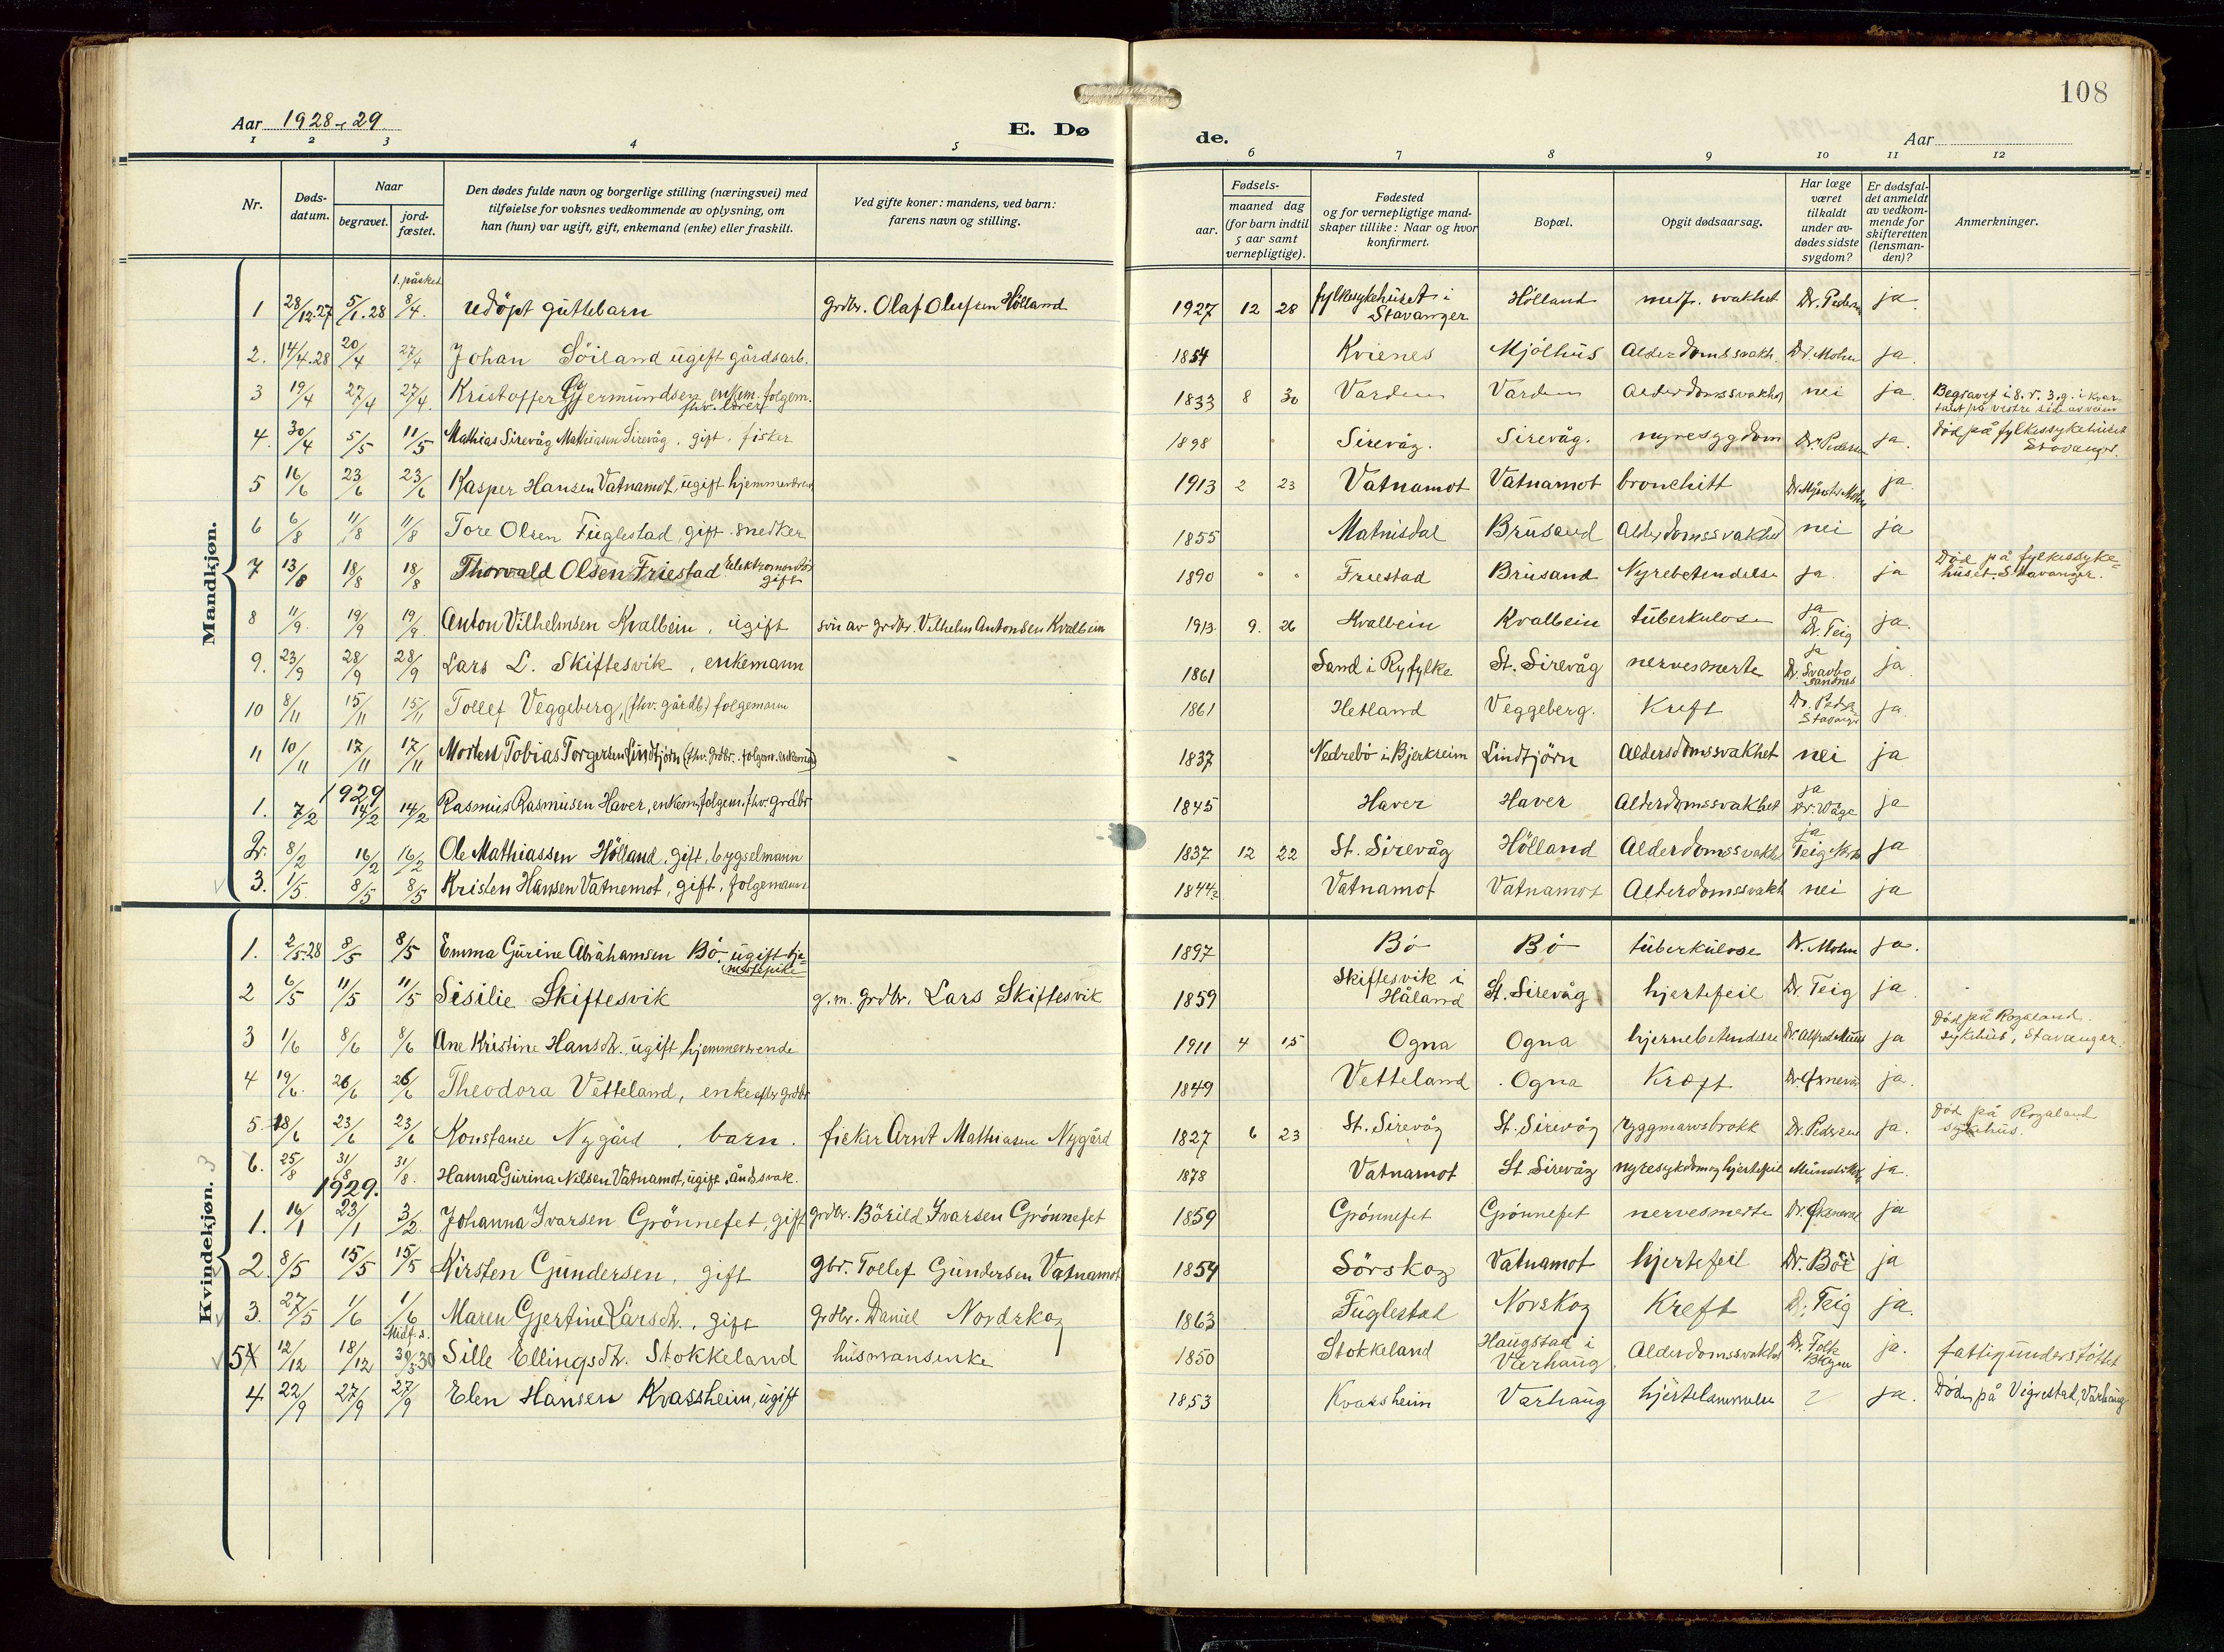 108
Aar 1928-29
E. Dø
de.
Aar
1 2 3 4 5 6 7 8 9 10 11 12
Nr.
Døds-datum.
Naar
begravet.
jord-fæstet.
Den dødes fulde navn og borgerlige stilling (næringsvei) med tilføielse for voksnes vedkommende av oplysning, om han (hun) var ugift, gift, enkemand (enke) eller fraskilt.
Ved gifte koner: mandens, ved barn: farens navn og stilling.
Fødsels-
aar.
maaned dag
(for barn indtil 5 aar samt vernepligtige).
Fødested og for vernepligtige mand-skaper tillike: Naar og hvor konfirmert.
Bopæl.
Opgit dødsaarsag.
Har læge været tilkaldt under av-dødes sidste sygdom?
Er dødsfal-det anmeldt av vedkom-mende for skifteretten (lensman-den)?
Anmerkninger.
Mandkjøn.
1 28/12.27 5/1.28 1. påsked. 8/4. udöpt guttebarn grdbr. Olaf Olufsen Hölland 1927 12 28 fylkesykehuset i Stavanger Hölland medf. svakhet Dr. Peders ja
2. 14/4.28 20/4 27/4 Johan Söiland ugift gårdsarb. 1854 Kvienes Mjölhus Alderdomssvakh. Dr. Mohn ja.
3 19/4 27/4 27/4. Kristoffer Gjermundsen enkem. folgem. fhv. lærer 1833 8 30 Varden Varden Alderdomssvakhet nei ja. Begravet i 8. r. 3. g. i kvartalet på vestre side av veien
4. 30/4 5/5 11/5 Mathias Sirevåg Mathiasen Sirevåg. gift. fisker 1898 Sirevåg. Sirevåg. nyresygdom Dr. Pedersen ja. Död på fylkessykehuset Stavanger.
5 16/6 23/6 23/6 Kasper Hansen Vatnamot, ugift hjemmevären 1913 2 23 Vatnamot Vatnamot bronchitt ja.
6 6/8 11/8 11/8 Tore Olsen Fuglestad, gift. snedker 1855 Matnisdal Brusand Alderdomssvakhet nei ja
7 13/8 18/8 18/8 Thorvald Olsen Friestad Elektromontör gift 1890 " " Friestad Brusand Nyrebetendelse ja. ja Död på fylkessyke-huset. Stavanger.
8 11/9. 19/9 19/9. Anton Vilhelmsen Kvalbein, ugift sön av grdbr. Vilhelm Antonsen Kvalbein 1913. 9. 26 Kvalbein Kvalbein tuberkulose ja Dr. Teig ja.
9. 23/9 28/9 28/9 Lars L. Skiftesvik, enkemann 1861 Sand i Ryfylke St. Sirevåg nervesmerte ja Dr. Svarbo Sandnes ja
10 8/11 15/11 15/11 Tollef Veggeberg, (fhv. gårdb) folgemann 1861 Hetland Veggeberg. Kreft Dr. Peders Stavanger ja.
11 10/11 17/11 17/11 Morten Tobias Torgersen Lindtjörn (fhv. grdbr. folgem. enkemand) 1837 Nedrebö i Bjerkreim Lindtjörn Aldersdomssvakhet nei ja
1929
1. 7/2 14/2 14/2 Rasmus Rasmusen Haver, enkem, folgem. fhv. grdbr 1845 Haver Haver Alderdomssvakhet ja Dr. Våge ja
2. 8/2 16/2 16/2 Ole Mathiassen Hölland, gift, bygselmann 1837 12 22 St. Sirevåg Hölland Alderdomssvakhet ja Teig ja
3. 1/5. 8/5 8/5 Kristen Hansen Vatnemot, gift, folgemann 1844 Vatnamot Vatnamot Alderdomssvakh nei ja
Kvindekjøn.
1. 2/5.28 8/5 8/5 Emma Gurine Abrahamsen Bö. ugift tje-nestepike 1897 Bö Bö tuberkulose Dr. Mohn ja.
2 6/5 11/5 11/5 Sisilie Skiftesvik g. m. grdbr. Lars Skiftesvik 1859 Skiftesvik i Håland St. Sirevåg hjertefeil Dr. Teig ja
3 1/6 8/6 8/6 Ane Kristine Hansdtr. ugift, hjemmeværende 1911 4 15 Ogna Ogna hjernebetendelse Dr. Alfred ja Död på Rogaland sykehus, Stavanger.
4 19/6. 26/6 26/6 Theodora Vetteland, enke efter grdbr 1849 Vetteland Ogna Kræft ja.
5. 18/6 23/6 23/6 Konstanse Nygård, barn. fisker Arnt Mathiasen Nygård 1827 6 23 St. Sirevåg St. Sirevåg ryggmarvsbrokk Dr. Pedersen ja. Död på Rogaland sykehus.
6. 25/8 31/8 31/8. Hanna Gurina Nilsen Vatnamot, ugift, åndssvak. 1878 Vatnamot St Sirevåg nyresykdom og hjertefeil ja.
1929.
1. 16/1 23/1 3/2. Johanna Ivarsen Grönnefet, gift grdbr. Börild Ivarsen Grönnefet 1859 Grönnefet Grönnefet nervesmerte ja
2. 8/5 15/5 15/5 Kirsten Gundersen, gift gbr. Tollef Gundersen Vatnamot 1854 Sörskog Vatnamot hjertefeil Dr. Böe ja
3. 27/5 1/6 1/6 Maren Gjertine Larsdtr., gift grdbr. Daniel Nordskog 1863 Fuglestad Norskog Kreft Dr. Teig ja.
5 12/12 18/12 Midf. s. 30/5 30 Sille Ellingsdtr. Stokkeland husmansenke 1850 Stokkeland Haugstad i Varhaug Alderdomssvakhet Dr. Falk Bryne ja. fattigunderstöttet
4 22/9 27/9 27/9 Elen Hansen Kvassheim, ugift 1853 Kvassheim Varhaug hjertelammelse ? ja. Döde på Vigrestad, Varhaug